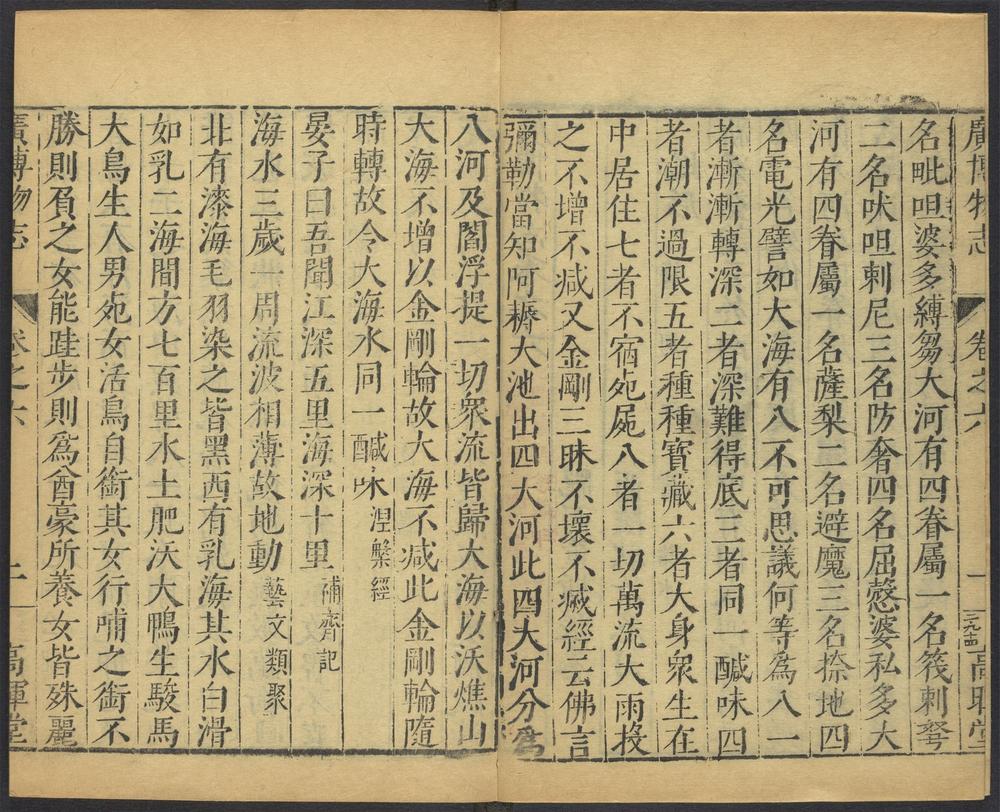 廣博物志 卷之六 高暉堂
名毗呾婆多縛芻大河有四眷屬一名筏剌弩
二名吠呾剌尼三名防奢四名屈愸婆私多大
河有四眷屬一名薩梨二名避魔三名捺地四
名電光譬如大海有八不可思議何等爲八一
者漸漸轉深二者深難得底三者同一鹹味四
者潮不過限五者種種寶藏六者大身衆生在
中居住七者不宿死屍八者一切萬流大雨投
之不增不減又金剛三昧不壞不滅經云佛言
彌勒當知阿耨大池出四大河此四大河分爲
八河及閻浮提一切衆流皆歸大海以沃燋山
大海不增以金剛輪故大海不減此金剛輪隨
時轉故令大海水同一鹹味 涅槃經
晏子曰吾聞江深五里海深十里 補齊記
海水三歲一周流波相薄故地動 藝文類聚
北有漆海毛羽染之皆黑西有乳海其水白滑
如乳二海間方七百里水土肥沃大鴨生駿馬
大鳥生人男死女活鳥自銜其女行哺之銜不
勝則負之女能跬步則爲酋豪所養女皆殊麗
廣博物志 卷之六 二 高暉堂